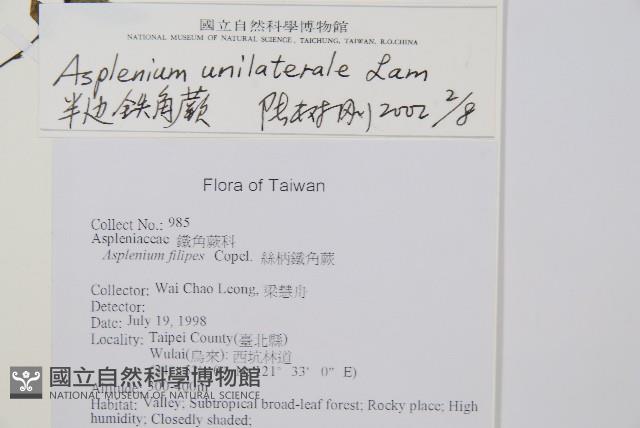 國立自然科學博物館
NATIONAL MUSEUM OF NATURAL SCIENCE, TAICHUNG, TAIWAN, R.O.CHINA
Asplenium unilaterale Lam
半边鉄角蕨 2002 2/8
Flora of Taiwan
Collect No.: 985
Aspleniaceae 鐵角蕨科
Asplenium filipes Copel. 絲柄鐵角蕨
Collector: Wai Chao Leong, 梁慧舟
Detector:
Date: July 19, 1998
Locality: Taipei County(臺北縣)
Wulai(烏來): 西坑林道
21° 33' 0" E)
國立自然科學博物館
NATIONAL MUSEUM OF NATURAL SCIENCE
Habitat: Valley; Subtropical broad-leaf forest; Rocky place; High
humidity; Closedly shaded;